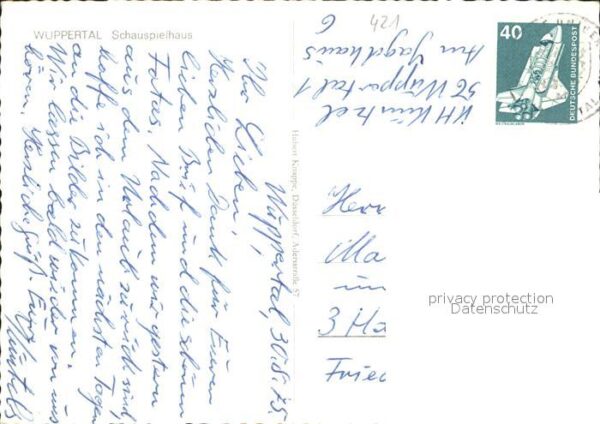 WUPPERTAL Schauspielhaus
Wuppertal, 30.8.75
Ihr Lieben,
Herzlichen Dank für Euren
lieben Brief und die schönen
Fotos. Nachdem wir gestern
aus dem Urlaub zurück sind,
hoffe ich in den nächsten Tagen
an die Bilder zu kommen.
Wir lassen bald wieder von uns
hören. Herzliche Grüße. Eure
Hubert Knuppe, Düsseldorf, Adersstraße 57
421
KH Küntzel
56 Wuppertal 1
Am Jagdhaus
6
40
DEUTSCHE BUNDESPOST
Herr
Ma
un
3 Ha
Fried
privacy protection
Datenschutz